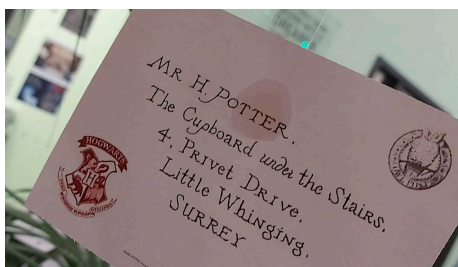 MR H. POTTER,
The Cupboard under the Stairs,
4, Privet Drive,
Little Whinging,
SURREY
HOGWARTS